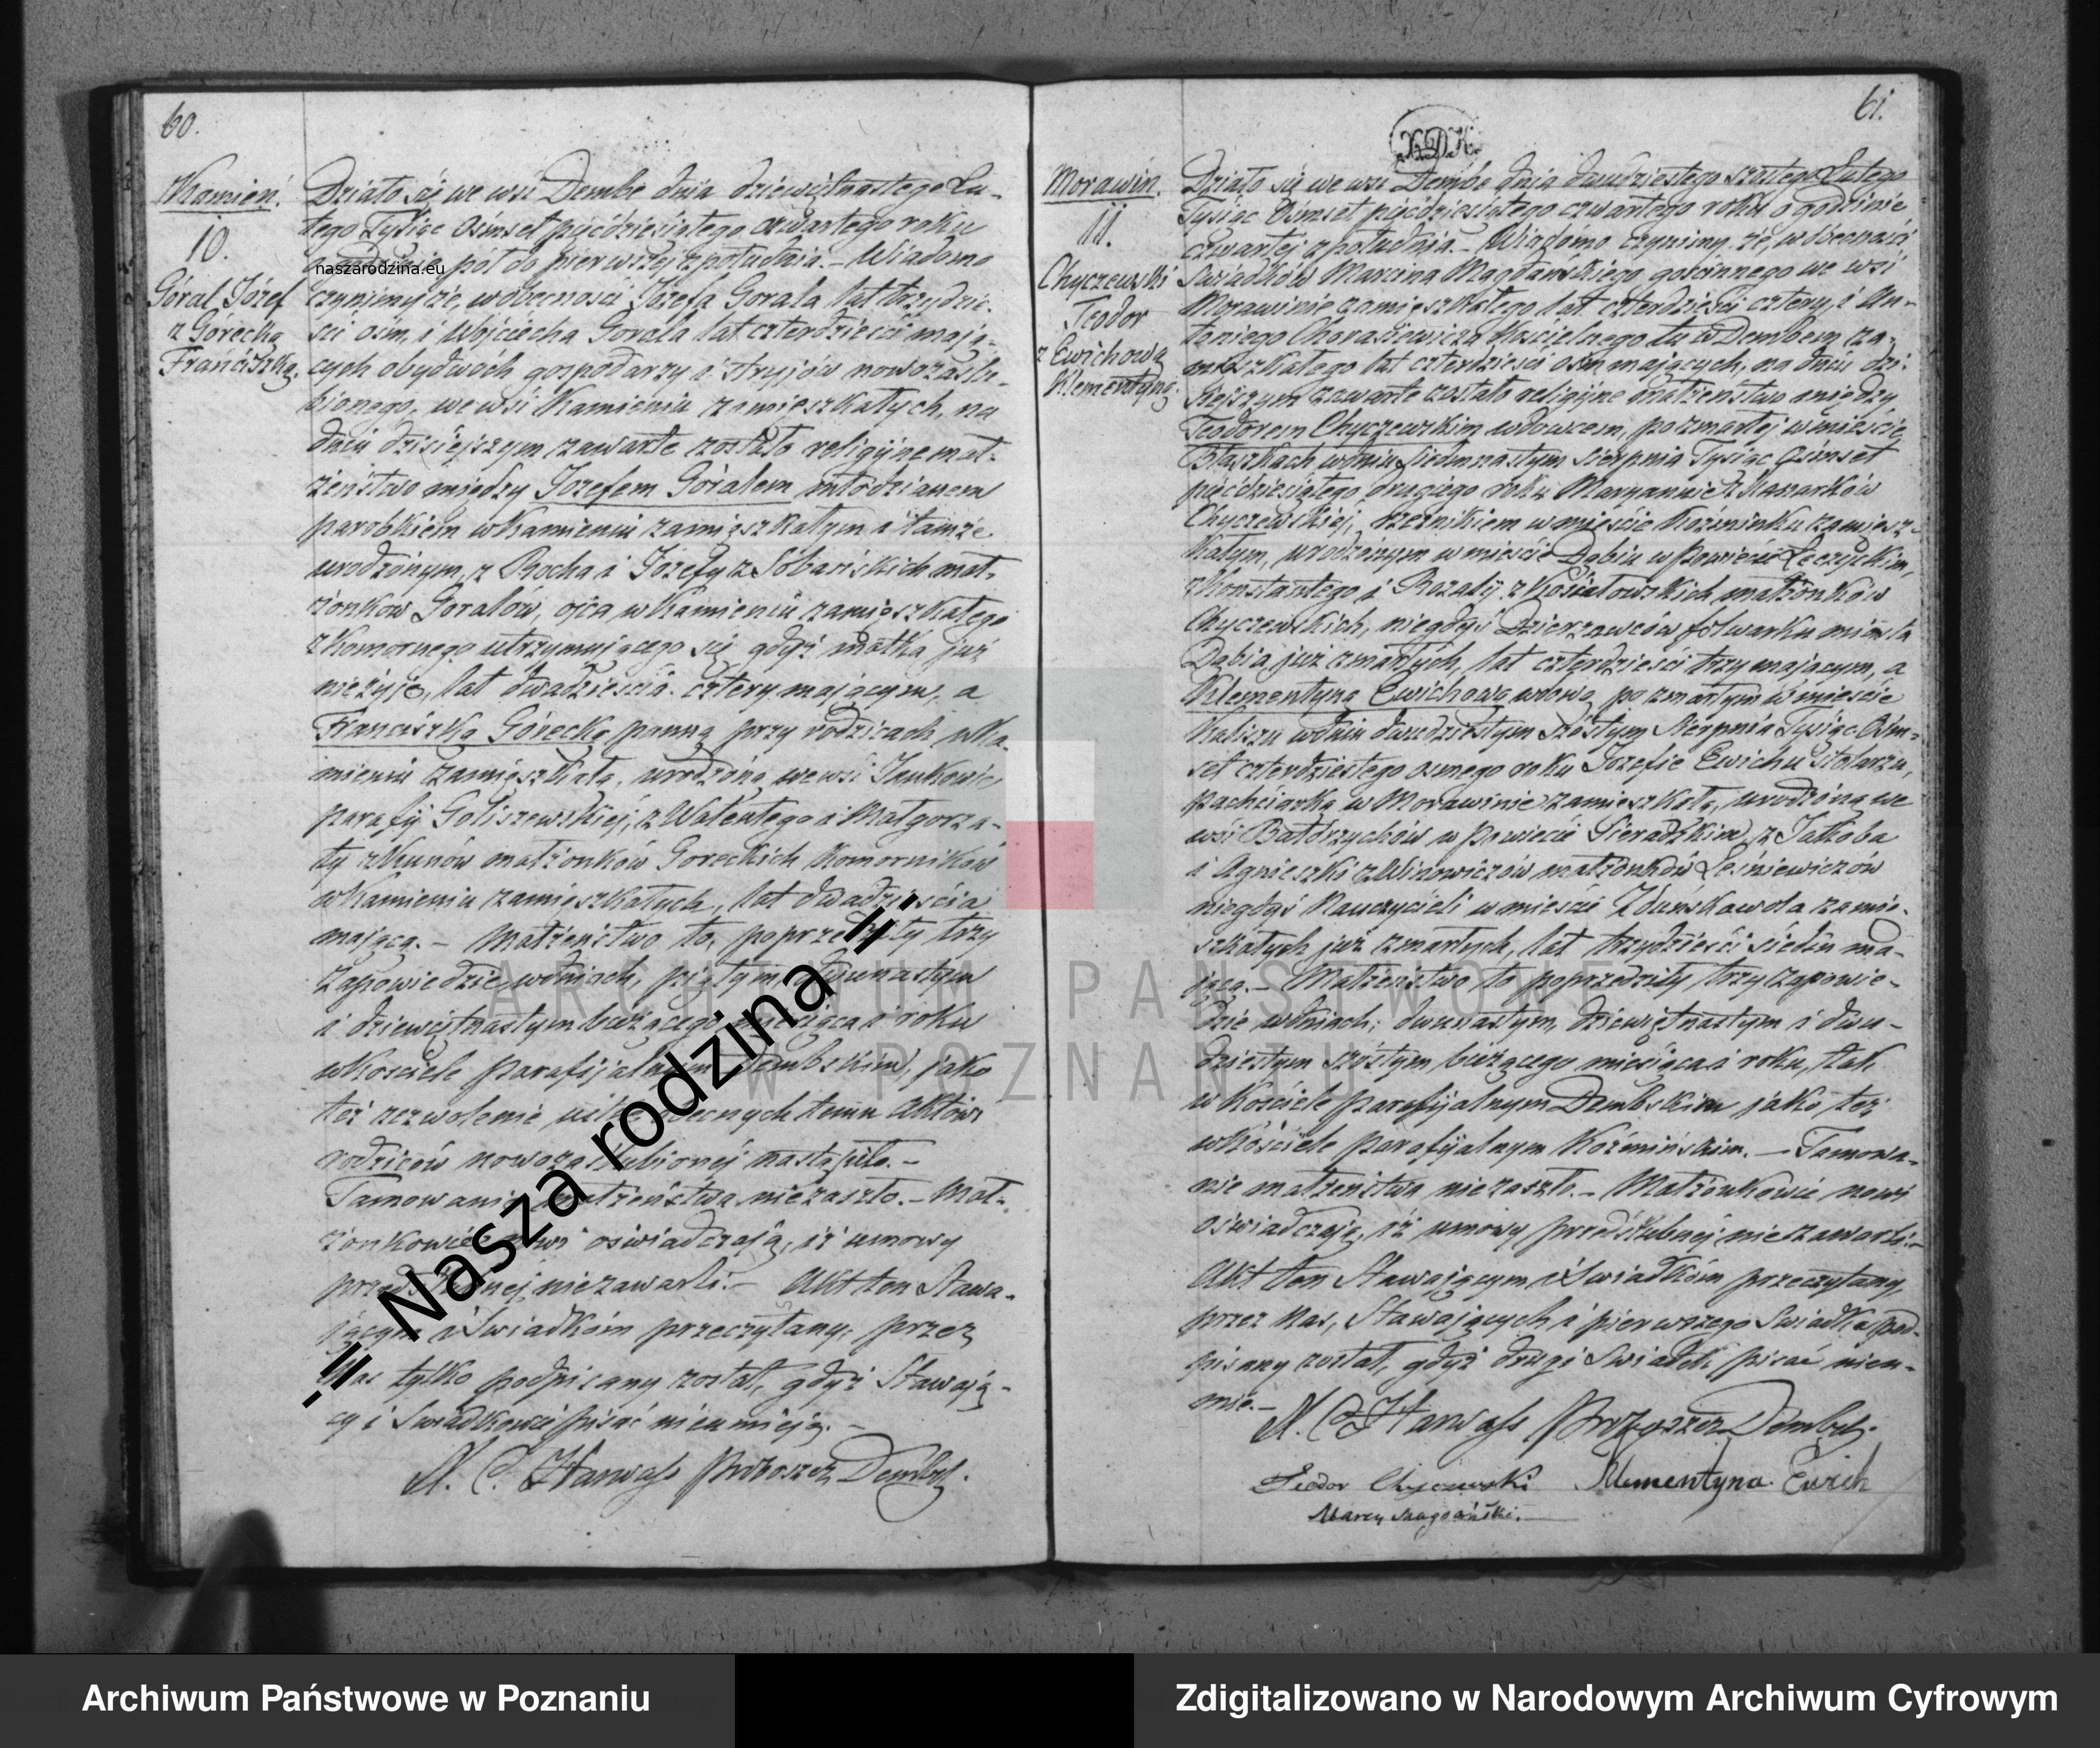 60.
Kamień.
10.
Góral Józef
z Górecką
Franciszką.
Działo się we wsi Dembe dnia dziewiętnastego Lu-
tego Tysiąc Ośmset pięćdziesiątego czwartego roku
pół do pierwszej z południa. – Wiadomo
czynimy iż, w obecności Józefa Gorala lat trzydzie-
ści ośm, i Wojciecha Gorala lat czterdzieści mają-
cych obydwóch gospodarzy i stryjów nowozaślu-
bionego, we wsi Kamieniu zamieszkałych, na
dniu dzisiejszym zawarte zostało religijne mał-
żeństwo między Józefem Góralem młodzianem
parobkiem w Kamieniu zamieszkałym i tamże
urodzonym, z Rocha i Józefy z Sobańskich mał-
żonków Goralów, ojca w Kamieniu zamieszkałego
z Komornego utrzymującego się gdyż matka już
nieżyje, lat dwadzieścia cztery mającym, a
Franciszką Górecką panną przy rodzicach w Ka-
mieniu zamieszkałą, urodzoną we wsi Jankowie,
parafij Goliszewskiej, z Walentego i Małgorza-
ty małżonków Goreckich Komorników
w Kamieniu zamieszkałych, lat dwadzieścia
mającą. – Małżeństwo to, poprzedziły trzy
zapowiedzie w dniach, piątym, dwunastym
i dziewiętnastym bieżącego miesiąca i roku
w Kościele parafijalnym Dembskim, jako
też zezwolenie obecnych temu Aktowi
rodziców nowozaślubionej nastąpiło. –
Tamowanie małżeństwa niezaszło. – Mał-
żonkowie nowi oświadczają, iż umowy
przedślubnej niezawarli. – Akt ten Stawa-
jącym i Świadkom przeczytany, przez
Nas tylko podpisany został, gdyż Stawają-
cy i Świadkowie pisać nieumieją. –
Proboszcz Dembs.
61.
XDK.
Morawin.
11.
Chyczewski
Teodor
z Ewichową
Klementyną.
Działo się we wsi Dembe dnia dwudziestego szóstego Lutego
Tysiąc Ośmset pięćdziesiątego czwartego roku o godzinie
czwartej z południa. – Wiadomo czynimy, że, w obecności
Świadków Marcina Magdańskiego gościnnego we wsi
Morawinie zamieszkałego lat czterdzieści cztery, i An-
toniego Kościelnego tu w Dembem za-
mieszkałego lat czterdzieści ośm mających, na dniu dzi-
siejszym zawarte zostało religijne małżeństwo między
Teodorem Chyczewskim wdowcem, po zmarłej w mieście
Błaszkach w dniu siedmnastym Sierpnia Tysiąc Ośmset
pięćdziesiątego drugiego roku Maryannie
Chyczewskiej, w mieście Koźminku zamiesz-
kałym, urodzonym w mieście Dąbiu w Powiecie Łęczyckim,
z Konstantego i Rozalij z małżonków
Chyczewskich, niegdyś Dzierzawców folwarku miasta
Dąbia, już zmarłych, lat czterdzieści trzy mającym, a
Klementyną Ewichową wdową po zmarłym w mieście
Kaliszu w dniu dwudziestym szóstym Sierpnia Tysiąc Ośm-
set czterdziestego osmego roku Józefie Ewichu Stolarzu,
pachciarką w Morawinie zamieszkałą, urodzoną we
wsi Bałdrzychów w Powiecie Sieradzkim, z Jakóba
i Agnieszki z Winowiczów małżonków Leśniewiczów
niegdyś Nauczycieli w mieście Zduńskawola zamie-
szkałych już zmarłych, lat trzydzieści siedm ma-
jącą. – Małżeństwo to poprzedziły trzy zapowie-
dzie w dniach; dwunastym, dziewiętnastym i dwu-
dziestym szóstym bieżącego miesiąca i roku, tak
w Kościele parafijalnym Dembskim, jako też
w Kościele parafijalnym Koźmińskim. – Tamowa-
nie małżeństwa niezaszło. – Małżonkowie nowi
oświadczają, iż umowy przedślubnej niezawarli. –
Akt ten Stawającym i Świadkom przeczytany,
przez Nas, Stawających i pierwszego Świadka pod-
pisany został, gdyż drugi Świadek pisać nieu-
mie. –
Proboszcz Dembs.
Teodor Chyczewski Klementyna Ewich
Marcin Magdański. –
naszarodzina.eu
.:i Nasza rodzina i:.
ARCHIWUM PAŃSTWOWE
W POZNANIU
Archiwum Państwowe w Poznaniu
Zdigitalizowano w Narodowym Archiwum Cyfrowym